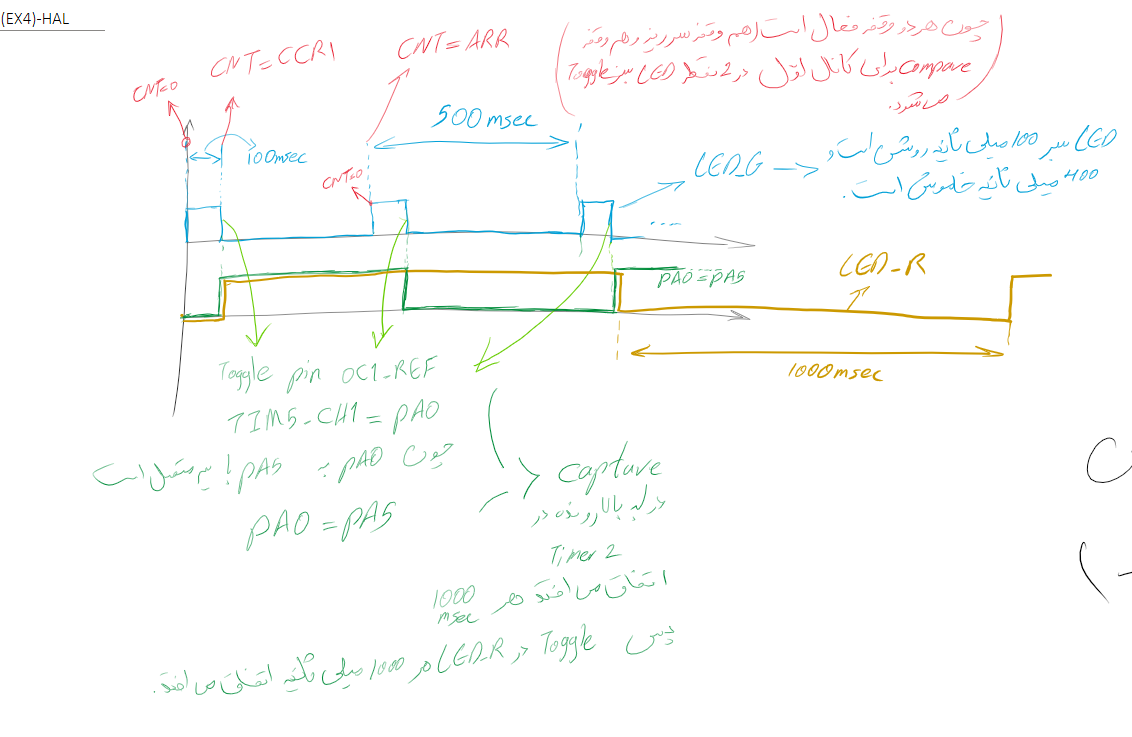 (EX4)-HAL
CNT=0
CNT=CCR1
CNT=ARR
(چون هر دو وقفه فعال است (هم وقفه سرریز و هم وقفه
compare برای کانال اول در 2 نقطه LED سبز Toggle
می شود.)
100msec
500msec
CNT=0
LED_G
LED سبز 100 میلی ثانیه روشن است و
400 میلی ثانیه خاموش است.
....
PA0=PA5
LED_R
1000msec
Toggle pin OC1_REF
TIM5-CH1=PA0
چون PA0 به PA5 متصل است
PA0=PA5
Capture
در لبه بالا رونده در
Timer 2
اتفاق می افتد هر 1000 msec
پس Toggle در LED_R هر 1000 میلی ثانیه اتفاق می افتد.